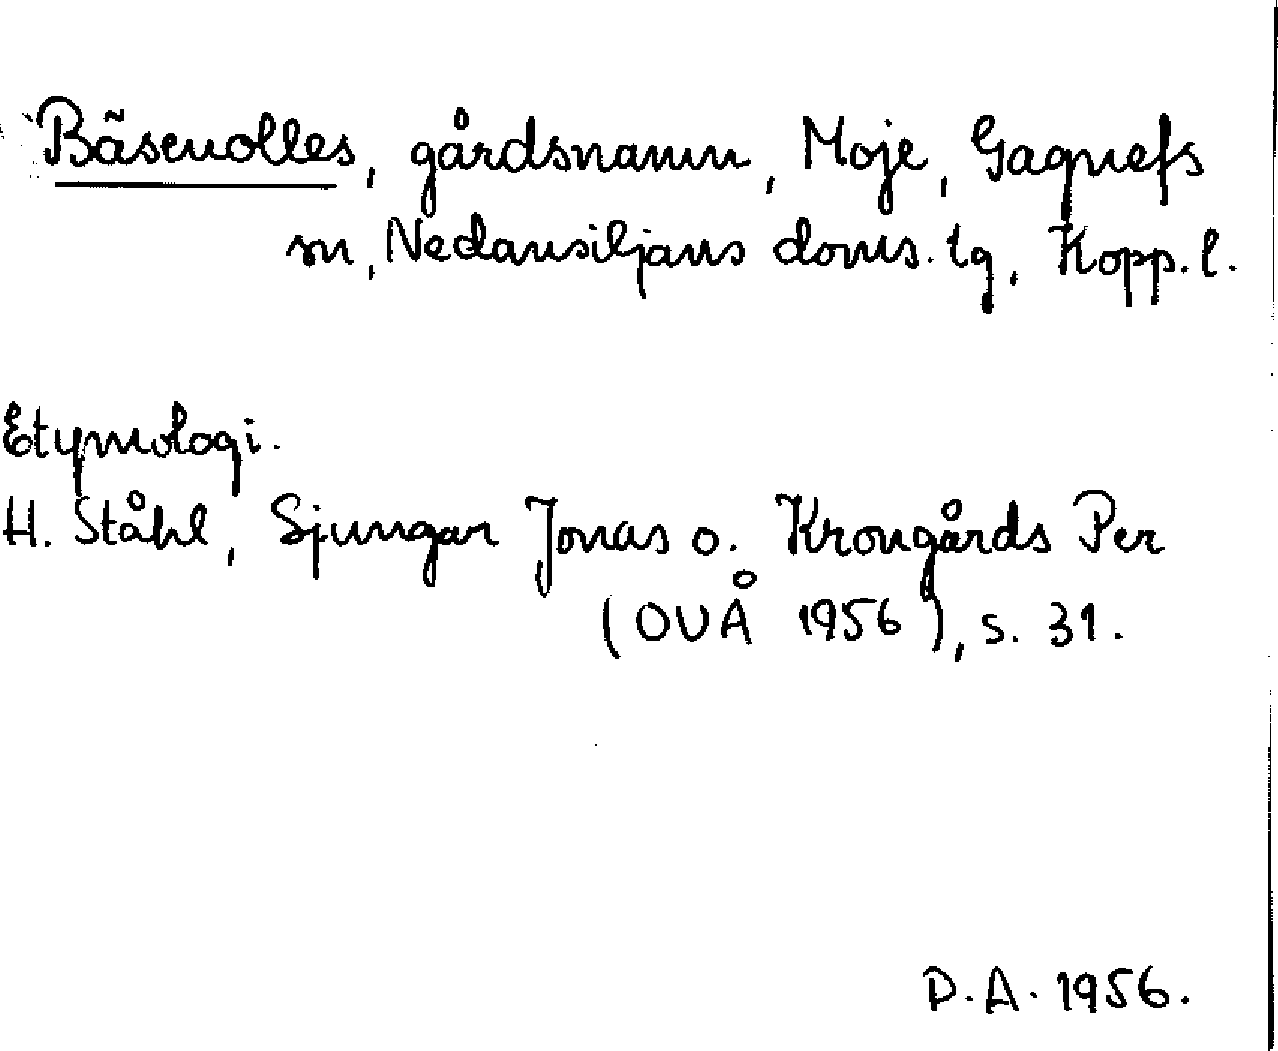 Bäsenolles, gårdsnamn, Moje, Gagnefs
sn, Nedansiljans doms. tg, Kopp. l.
Etymologi.
H. Ståhl, Sjungar Jonas o. Krongårds Per
(OUÅ 1956), s. 31.
D.A. 1956.